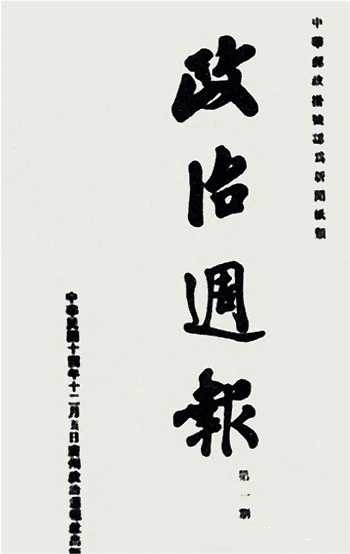 中華郵政掛號認為新聞紙類
政治週報
第一期
中華民國十四年十二月五日廣州政治週報社出版